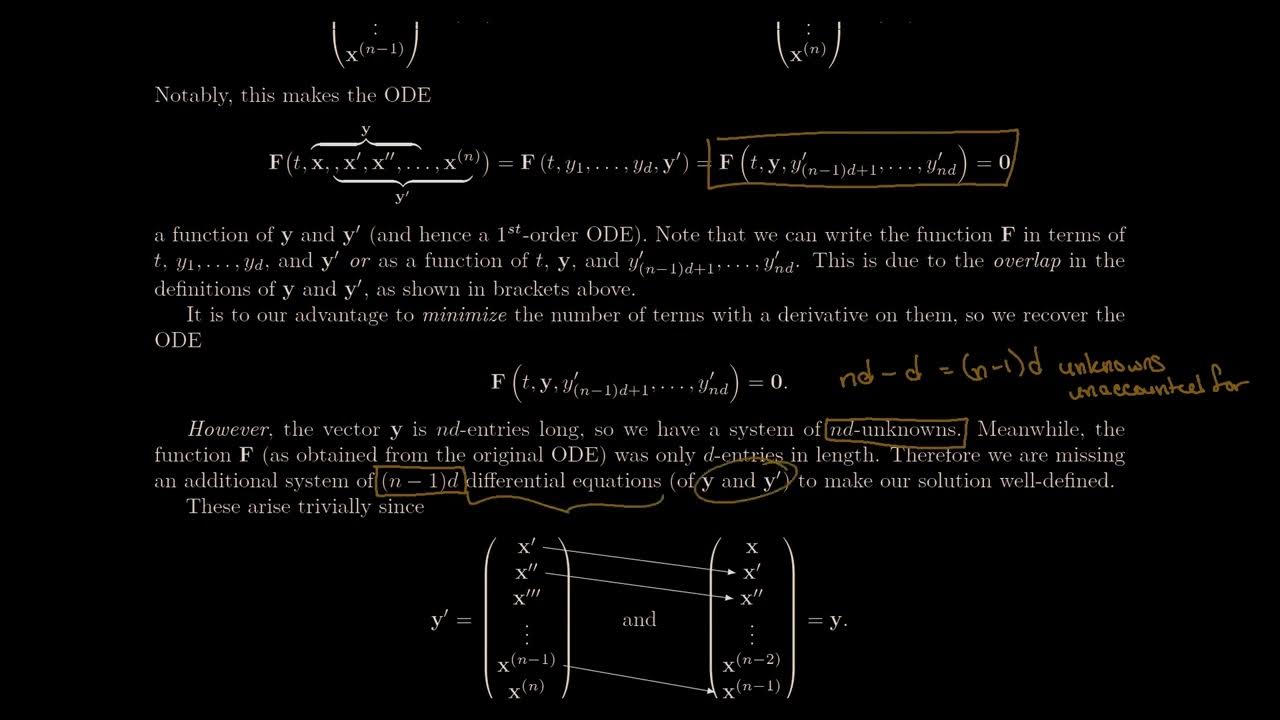 ⋮ ⋮
x^(n−1) x^(n)
Notably, this makes the ODE
y
F(t, x, , x′, x″, . . . , x^(n)) = F (t, y_1, . . . , y_d, y′) = F (t, y, y′_(n−1)d+1, . . . , y′_nd) = 0
y′
a function of y and y′ (and hence a 1^st-order ODE). Note that we can write the function F in terms of
t, y_1, . . . , y_d, and y′ or as a function of t, y, and y′_(n−1)d+1, . . . , y′_nd. This is due to the overlap in the
definitions of y and y′, as shown in brackets above.
It is to our advantage to minimize the number of terms with a derivative on them, so we recover the
ODE
F (t, y, y′_(n−1)d+1, . . . , y′_nd) = 0.
nd − d = (n−1)d unknowns
unaccounted for
However, the vector y is nd-entries long, so we have a system of nd-unknowns. Meanwhile, the
function F (as obtained from the original ODE) was only d-entries in length. Therefore we are missing
an additional system of (n − 1)d differential equations (of y and y′) to make our solution well-defined.
These arise trivially since
x′ x
x″ x′
x‴ x″
y′ = ⋮ and ⋮ = y.
x^(n−1) x^(n−2)
x^(n) x^(n−1)